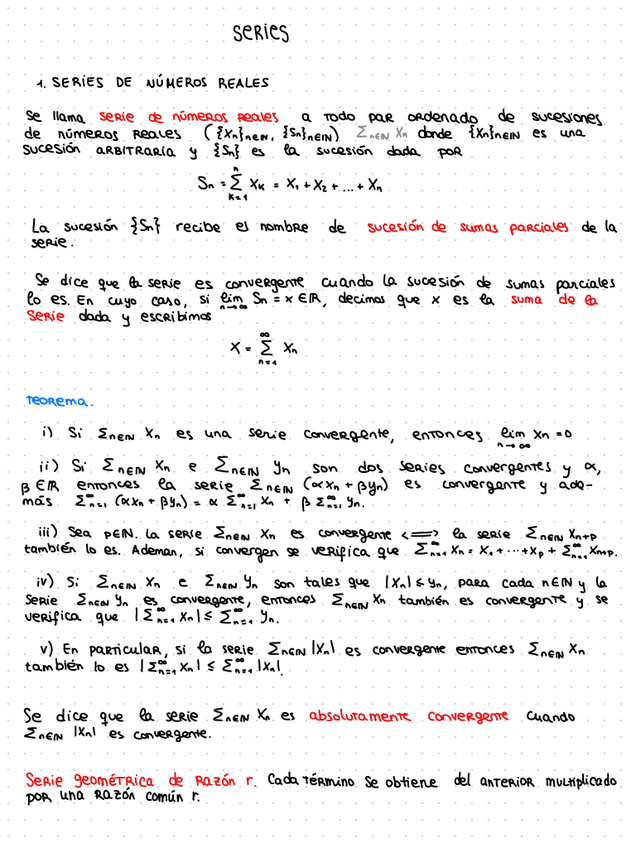 SERIES
1. SERIES DE NÚMEROS REALES
Se llama serie de números reales a todo par ordenado de sucesiones
de números reales ({Xn}n∈ℕ, {Sn}n∈ℕ) Σn∈ℕ Xn donde {Xn}n∈ℕ es una
sucesión arbitraria y {Sn} es la sucesión dada por
Sn = Σ_{K=1}^{n} XK = X1 + X2 + ... + Xn
La sucesión {Sn} recibe el nombre de sucesión de sumas parciales de la
serie.
Se dice que la serie es convergente cuando la sucesión de sumas parciales
lo es. En cuyo caso, si lim_{n→∞} Sn = x ∈ ℝ, decimos que x es la suma de la
serie dada y escribimos
X = Σ_{n=1}^{∞} Xn
Teorema.
i) Si Σn∈ℕ Xn es una serie convergente, entonces lim_{n→∞} Xn = 0
ii) Si Σn∈ℕ Xn e Σn∈ℕ Yn son dos series convergentes y α,
β ∈ ℝ entonces la serie Σn∈ℕ (αXn + βYn) es convergente y ade-
más Σ_{n=1}^{∞} (αXn + βYn) = α Σ_{n=1}^{∞} Xn + β Σ_{n=1}^{∞} Yn.
iii) Sea p∈ℕ. La serie Σn∈ℕ Xn es convergente <=> la serie Σn∈ℕ Xn+p
también lo es. Ademan, si convergen se verifica que Σ_{n=1}^{∞} Xn = X1 + ··· + Xp + Σ_{n=1}^{∞} Xn+p.
iv) Si Σn∈ℕ Xn e Σn∈ℕ Yn son tales que |Xn| ≤ Yn, para cada n∈ℕ y la
serie Σn∈ℕ Yn es convergente, entonces Σn∈ℕ Xn también es convergente y se
verifica que |Σ_{n=1}^{∞} Xn| ≤ Σ_{n=1}^{∞} Yn.
v) En particular, si la serie Σn∈ℕ |Xn| es convergente entonces Σn∈ℕ Xn
también lo es |Σ_{n=1}^{∞} Xn| ≤ Σ_{n=1}^{∞} |Xn|
Se dice que la serie Σn∈ℕ Xn es absolutamente convergente cuando
Σn∈ℕ |Xn| es convergente.
Serie geométrica de razón r. Cada término se obtiene del anterior multiplicado
por una razón común r.